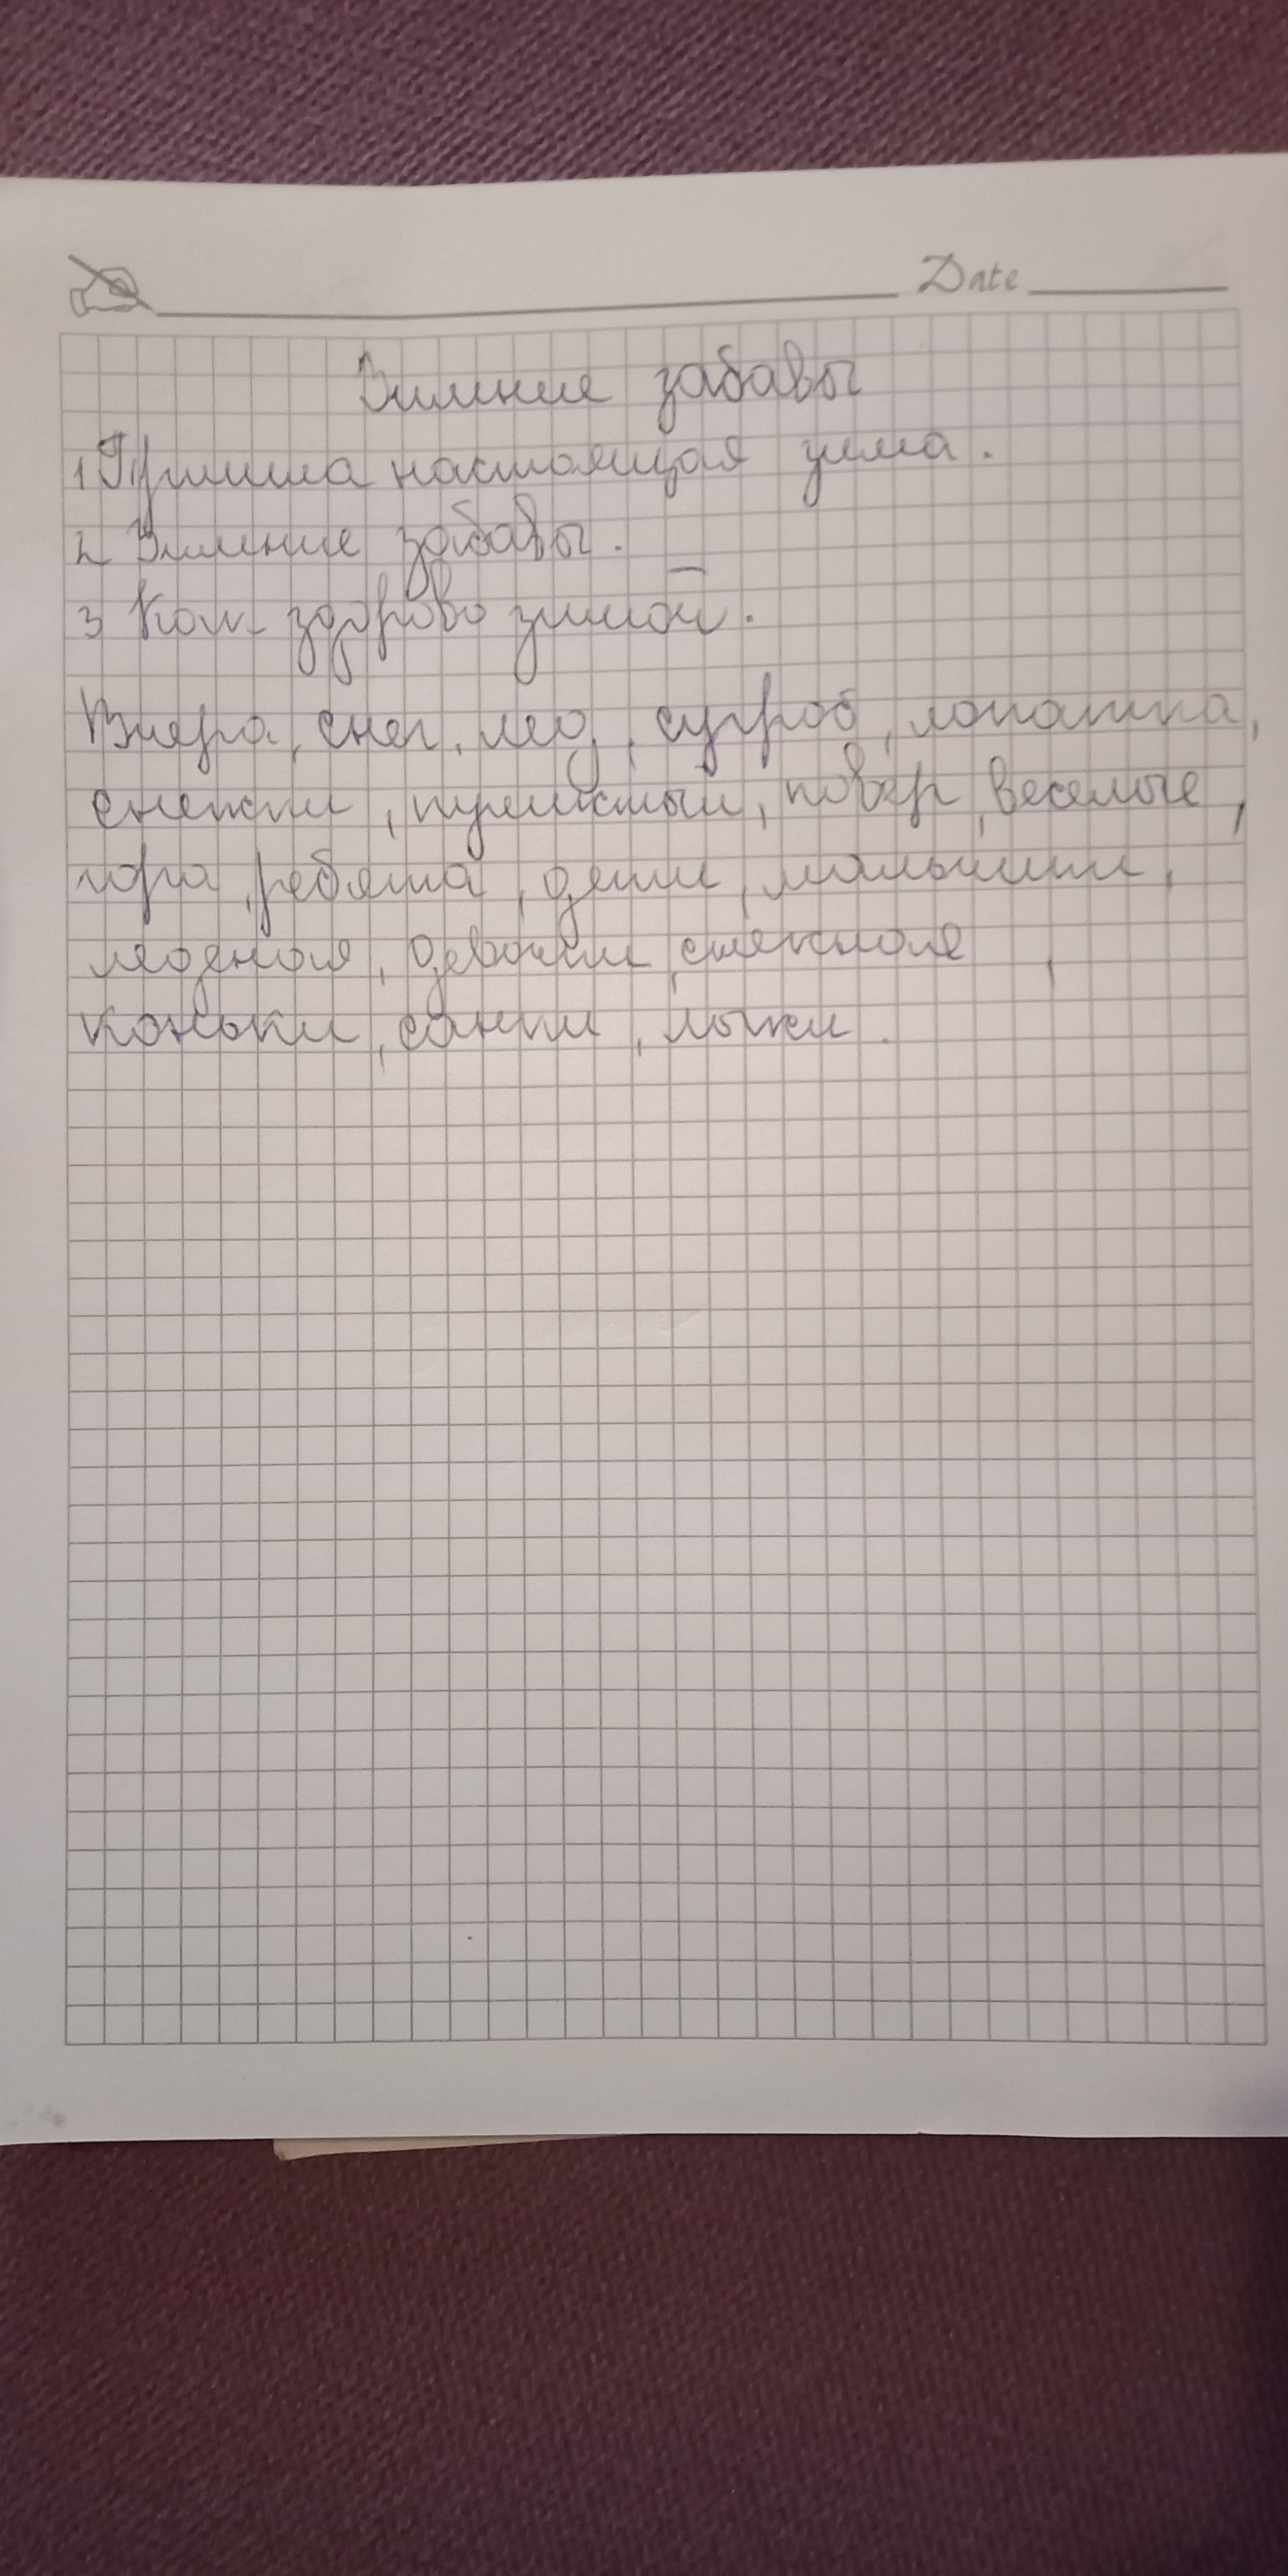 Date
Зимние забавы
1 Пришла настоящая зима.
2 Зимние забавы.
3 Как здорово зимой.
Вчера, снег, лед, сугроб, лопатка,
снежки, пушистый, веселые,
гора, ребята, дети, мальчики,
леденая, девочки,
коньки, санки, лыжи.